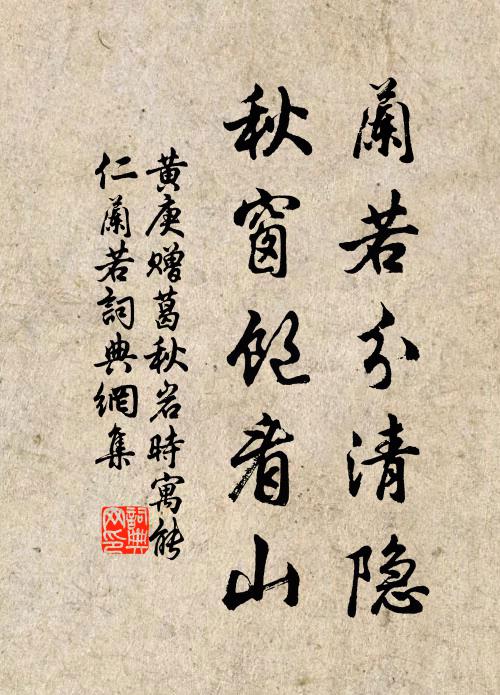 蘭若分清隐
秋窗飽看山
黄庚贈葛秋岩時寓能
仁蘭若詞典網集
詞典
网印